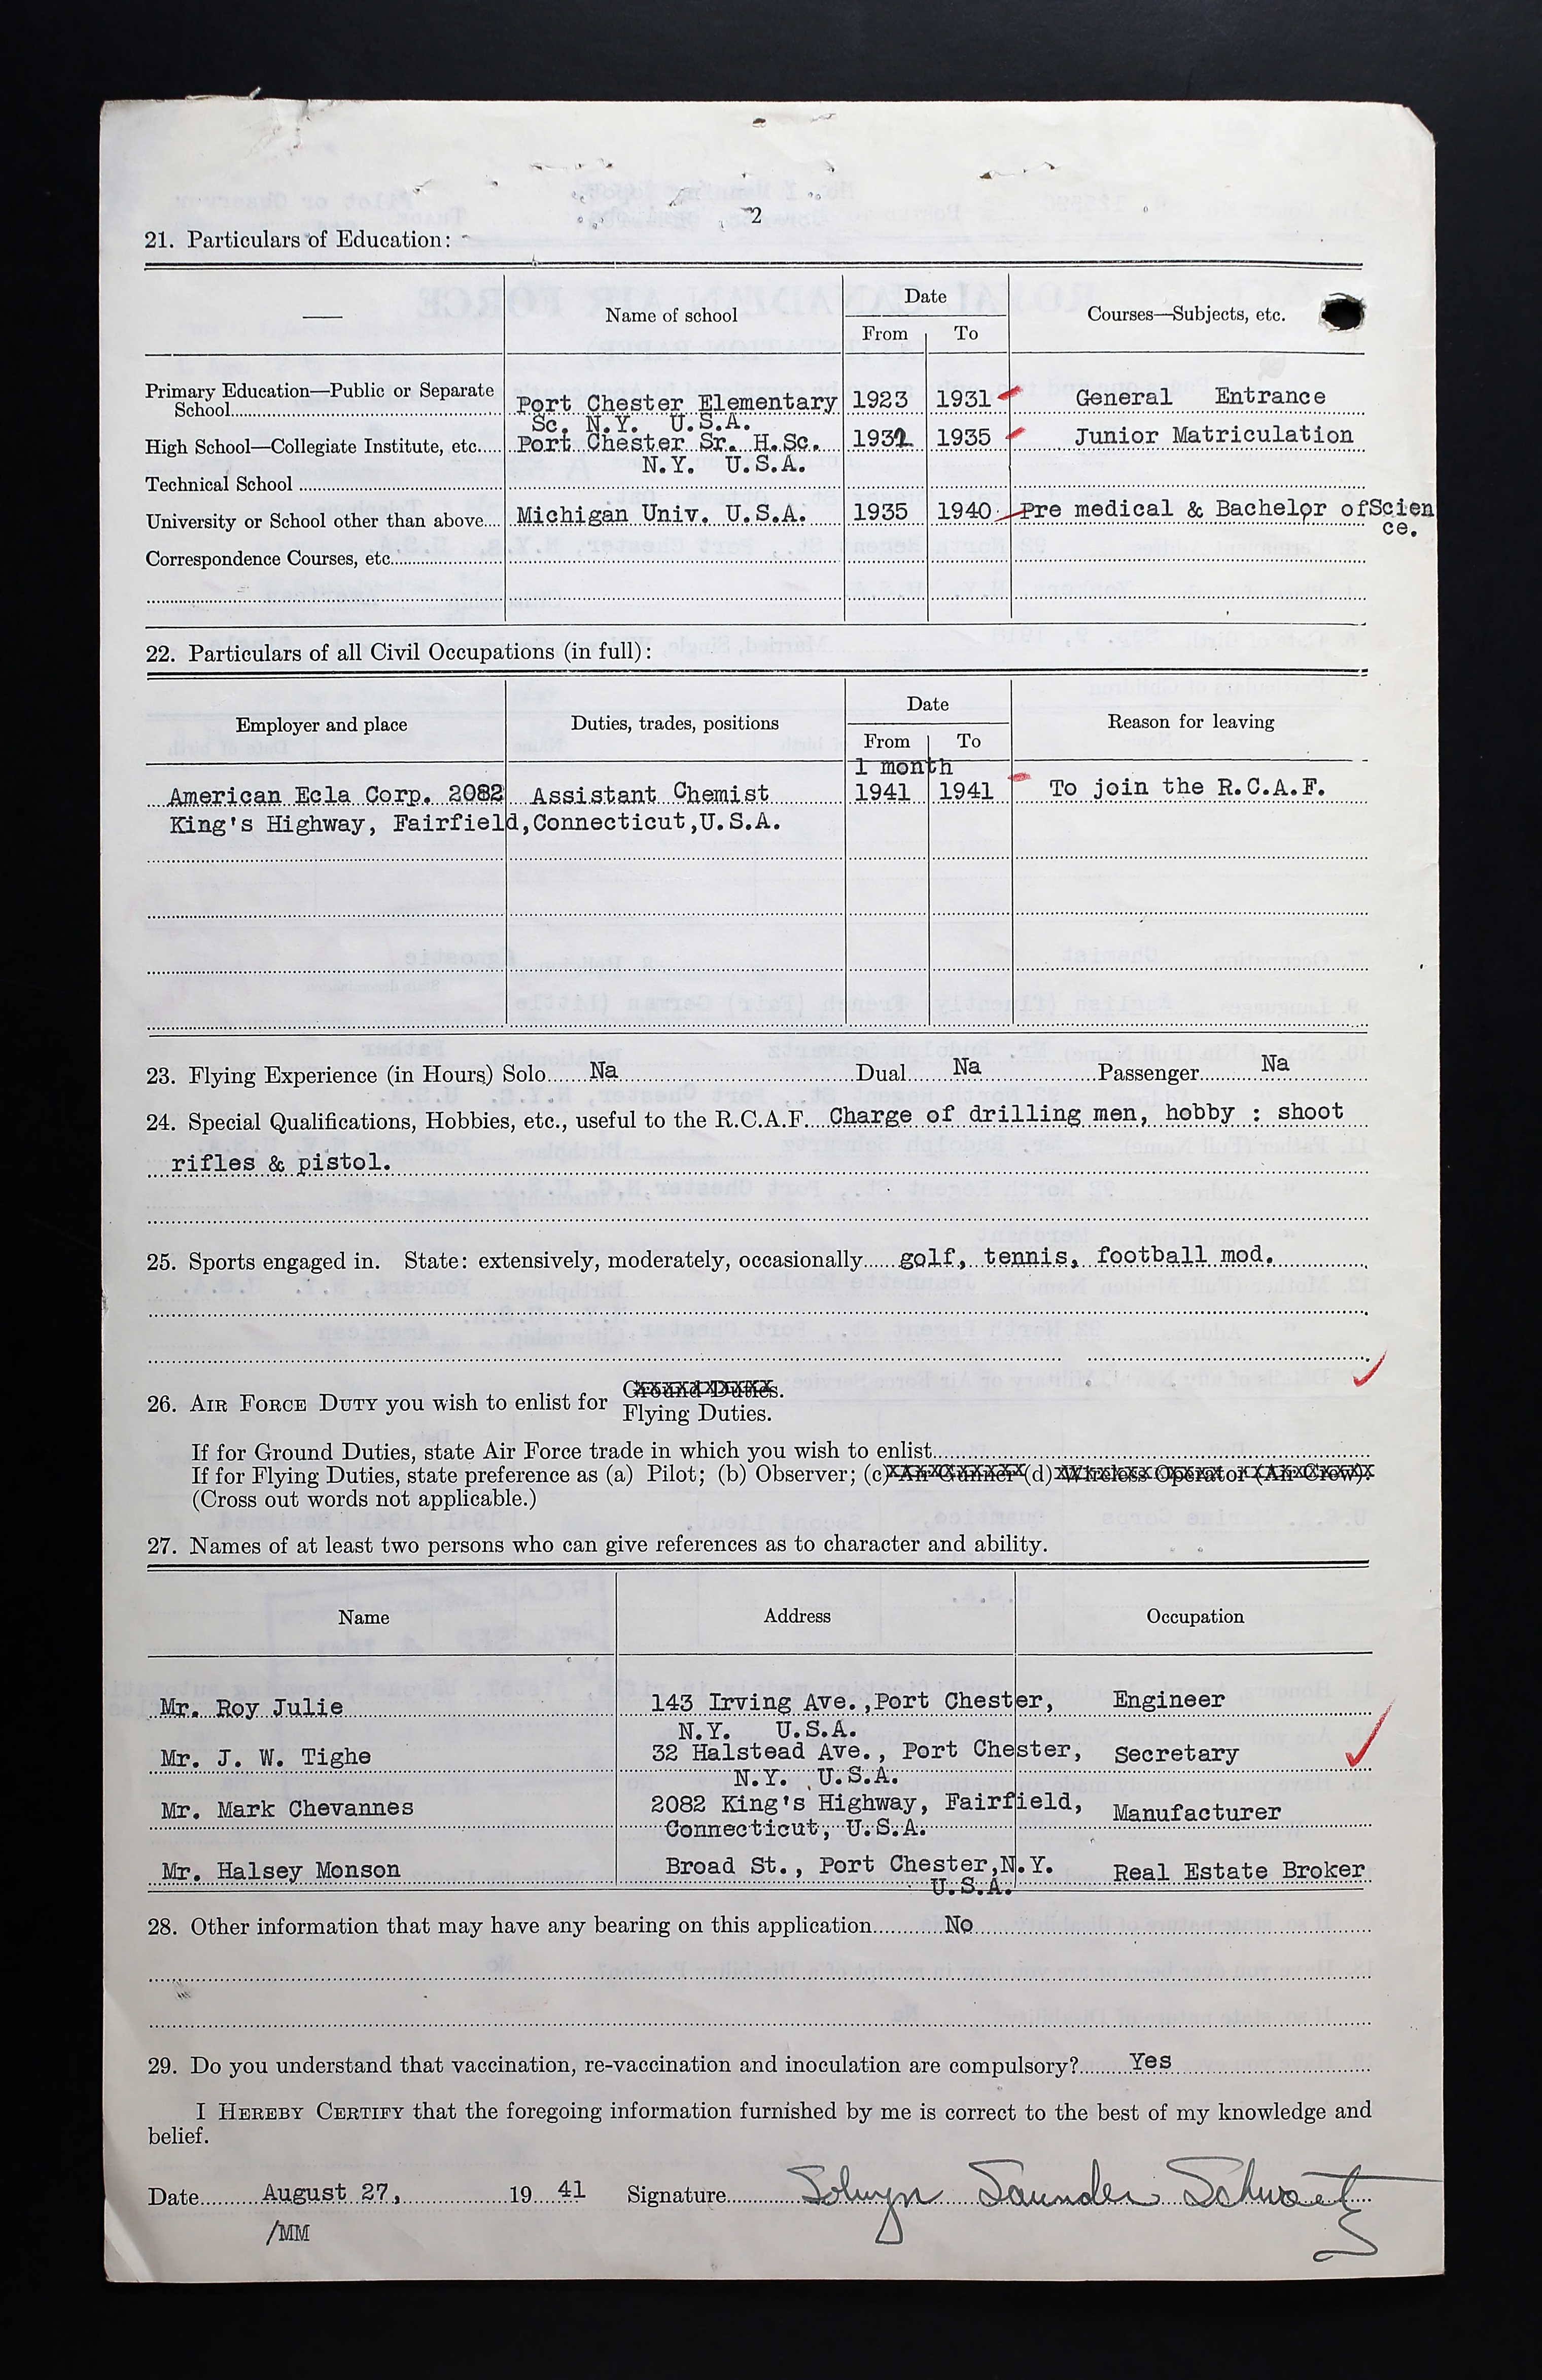 2
21. Particulars of Education:
Name of school
Date
From
To
Courses—Subjects, etc.
Primary Education—Public or Separate
School
Port Chester Elementary
1923
1931
General Entrance
Sc. N.Y. U.S.A.
High School—Collegiate Institute, etc.
Port Chester Sr. H.Sc.
1932
1935
Junior Matriculation
N.Y. U.S.A.
Technical School
University or School other than above
Michigan Univ. U.S.A.
1935
1940
Pre medical & Bachelor ofScien
ce.
Correspondence Courses, etc.
22. Particulars of all Civil Occupations (in full):
Employer and place
Duties, trades, positions
Date
From
To
Reason for leaving
1 month
American Ecla Corp. 2082
Assistant Chemist
1941
1941
To join the R.C.A.F.
King's Highway, Fairfield,Connecticut,U.S.A.
23. Flying Experience (in Hours) Solo Na Dual Na Passenger Na
24. Special Qualifications, Hobbies, etc., useful to the R.C.A.F. Charge of drilling men, hobby : shoot
rifles & pistol.
25. Sports engaged in. State: extensively, moderately, occasionally golf, tennis, football mod.
26. AIR FORCE DUTY you wish to enlist for Ground Duties.
Flying Duties.
If for Ground Duties, state Air Force trade in which you wish to enlist
If for Flying Duties, state preference as (a) Pilot; (b) Observer; (c) Air Gunner (d) Wireless Operator (Air Crew).
(Cross out words not applicable.)
27. Names of at least two persons who can give references as to character and ability.
Name
Address
Occupation
Mr. Roy Julie
143 Irving Ave.,Port Chester,
Engineer
N.Y. U.S.A.
Mr. J. W. Tighe
32 Halstead Ave., Port Chester,
Secretary
N.Y. U.S.A.
Mr. Mark Chevannes
2082 King's Highway, Fairfield,
Manufacturer
Connecticut, U.S.A.
Mr. Halsey Monson
Broad St., Port Chester,N.Y.
Real Estate Broker
U.S.A.
28. Other information that may have any bearing on this application No
29. Do you understand that vaccination, re-vaccination and inoculation are compulsory? Yes
I HEREBY CERTIFY that the foregoing information furnished by me is correct to the best of my knowledge and
belief.
Date August 27, 19 41 Signature Solwyn Saunder Schwartz
/MM